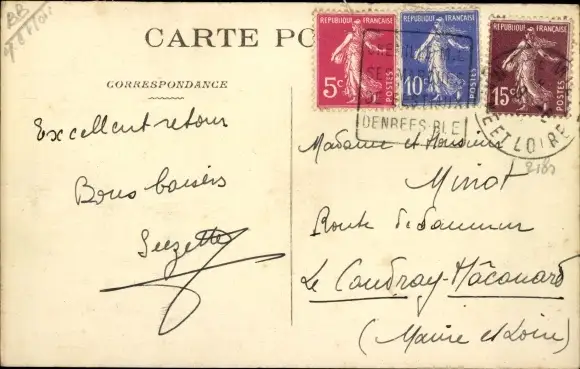 CARTE PO
CORRESPONDANCE
Excellent retour
Bons baisers
Suzette
REPUBLIQUE FRANÇAISE
5c
POSTES
REPUBLIQUE FRANÇAISE
10c
POSTES
REPUBLIQUE FRANÇAISE
15c
POSTES
DENREES-BLE
ET LOIRE
Madame et Monsieur
Minot
Route de Saumur
Le Coudray-Mâcouard
(Maine et Loire)